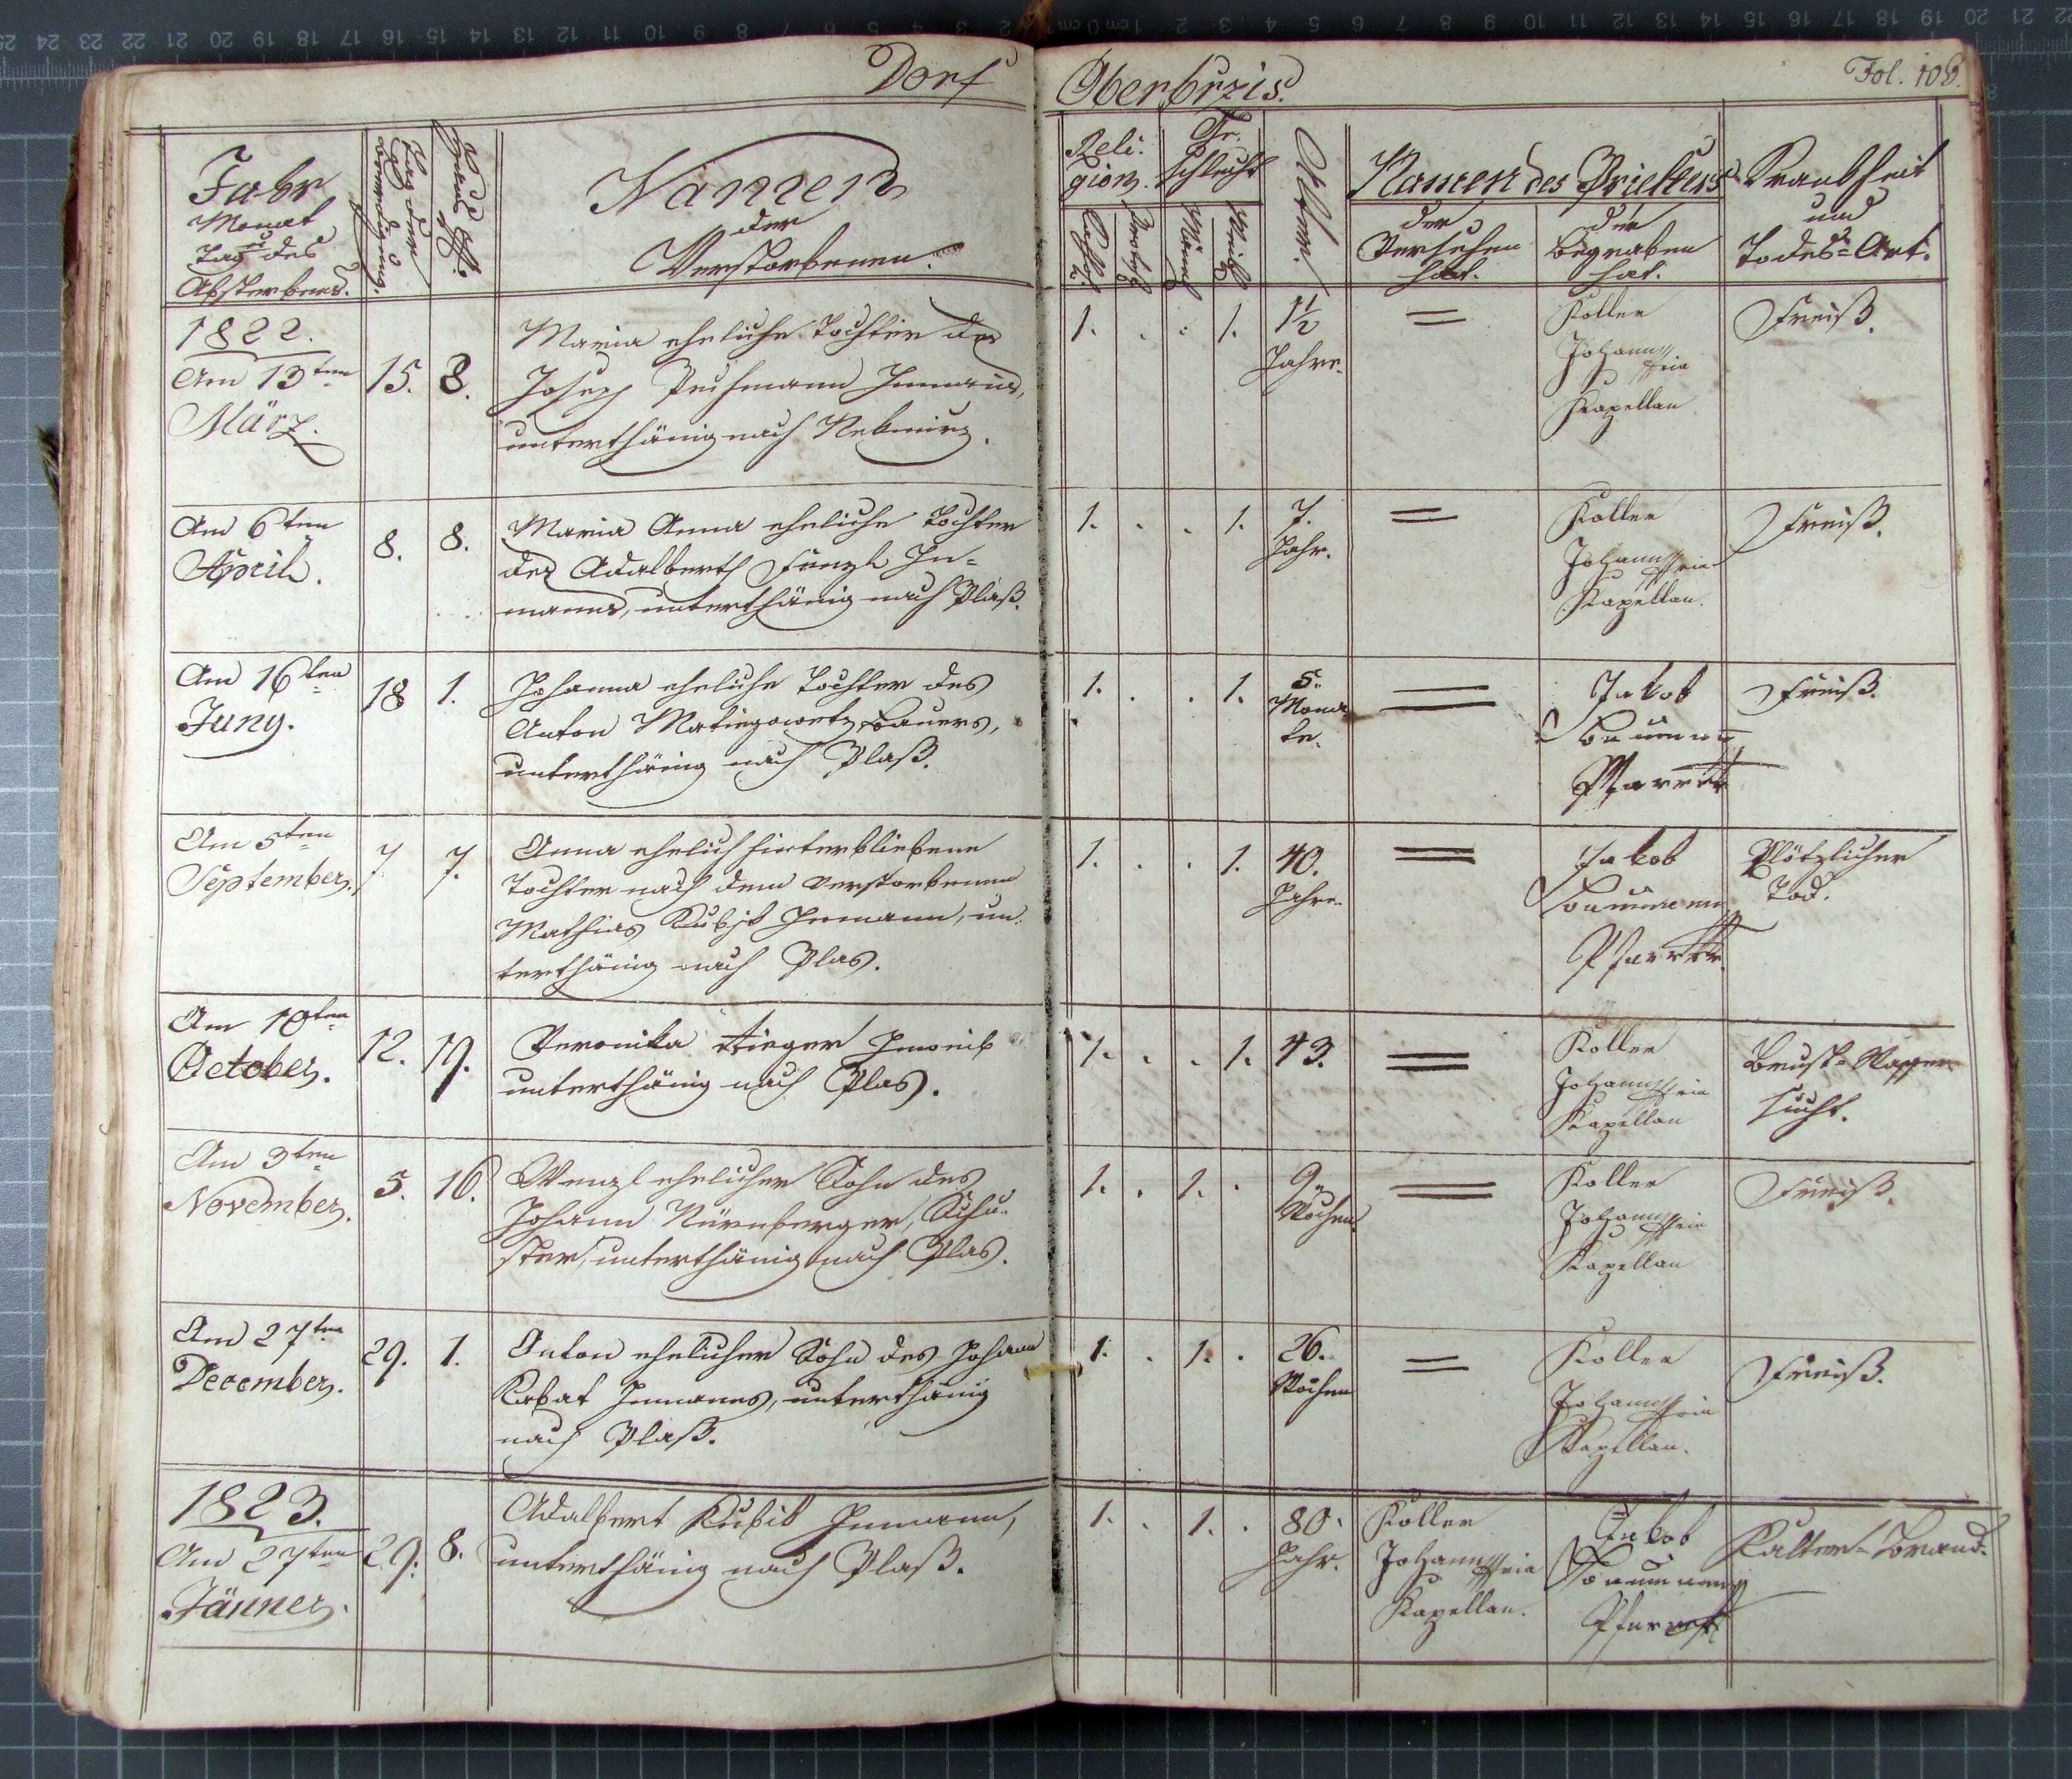 Dorf Oberbrzis.
Fol. 105.
Jahr
Monat
u
Tag des
Absterbens.
Tag der
Beerdigung.
Haus
Namen
der
Verstorbenen.
Reli-
gion.
Kathol.
Protest
Ge-
schlecht
Mänl
Weibl
Alter.
Namen des Priesters
der
Versehen
hat.
der
begraben
hat.
Krankheit
und
Todes-Art.
1822.
Am 13ten
März.
15.
8.
Maria eheliche Tochter des
Joseph Innmanns,
unterthänig nach
1. . . 1.
1½
Jahre.
=
Koller
Johann
Kapellan
Freiß.
Am 6ten
April.
8.
8.
Maria Anna eheliche Tochter
des Adalberth In-
manns, unterthänig nach Plaß.
1. . . 1.
7.
Jahr.
=
Koller
Johann
Kapellan.
Freiß.
Am 16ten
Juny.
18
1.
Johanna eheliche Tochter des
Anton Matiegowetz, Bauers,
unterthänig nach Plaß.
1. . . 1.
5.
Mona
te.
=
Jakob
Pfarrer
Freiß.
Am 5ten
September.
7.
7.
Anna ehelich hinterbliebene
Tochter nach dem verstorbenen
Mathias Inmann, un-
terthänig nach Plas.
1. . . 1.
40.
Jahre.
=
Jakob
Pfarrer
Plötzlicher
Tod.
Am 10ten
October.
12.
19.
Veronika Inweib
unterthänig nach Plas.
1. . . 1.
43.
=
Koller
Johann
Kapellan
Brust-Wasser-
sucht.
Am 3ten
November.
5.
16.
Wenzl ehelicher Sohn des
Johann Nürnberger, Schu-
ster, unterthänig nach Plas.
1. . 1. .
9
Wochen
=
Koller
Johann
Kapellan
Freiß.
Am 27ten
December.
29.
1.
Anton ehelicher Sohn des Johann
Kabat Inmanns, unterthänig
nach Plaß.
1. . 1. .
26.
Wochen
=
Koller
Johann
Kapellan.
Freiß.
1823.
Am 27ten
Jänner.
29.
8.
Adalbert Kubik Inmann,
unterthänig nach Plaß.
1. . 1. .
80.
Jahr.
Koller
Johann
Kapellan.
Jakob
Pfarrer
Kalter-Brand.